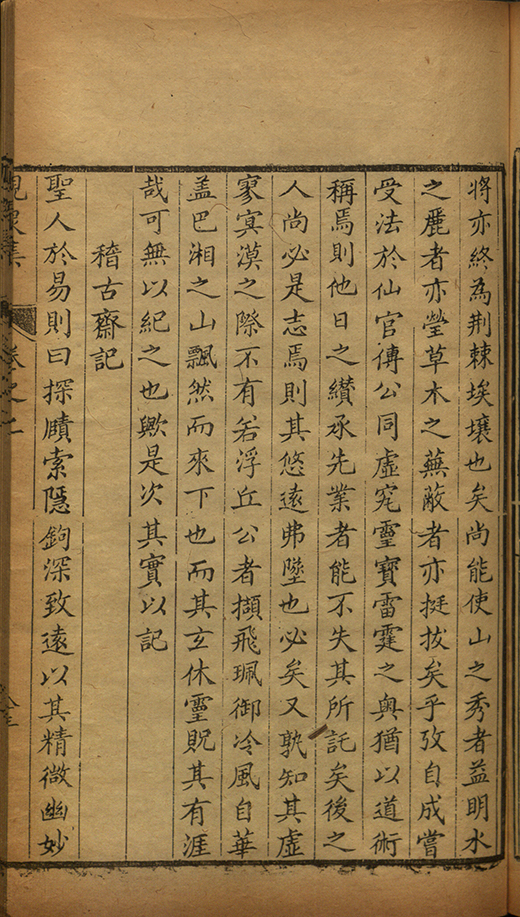 將亦終為荆棘埃壤也矣尚能使山之秀者益明水
之麗者亦瑩草木之蕪蔽者亦挺拔矣乎攷自成嘗
受法於仙官傅公同虛究靈寶雷霆之奥猶以道術
稱焉則他日之纉承先業者能不失其所託矣後之
人尚必是志焉則其悠遠弗墜也必矣又孰知其虛
寥寞漠之際不有若浮丘公者擷飛珮御冷風自華
盖巴湘之山飄然而來下也而其玄休靈貺其有涯
哉可無以紀之也歟是次其實以記
稽古齋記
聖人於易則曰探賾索隱鉤深致遠以其精微幽妙
峴泉集
卷之二